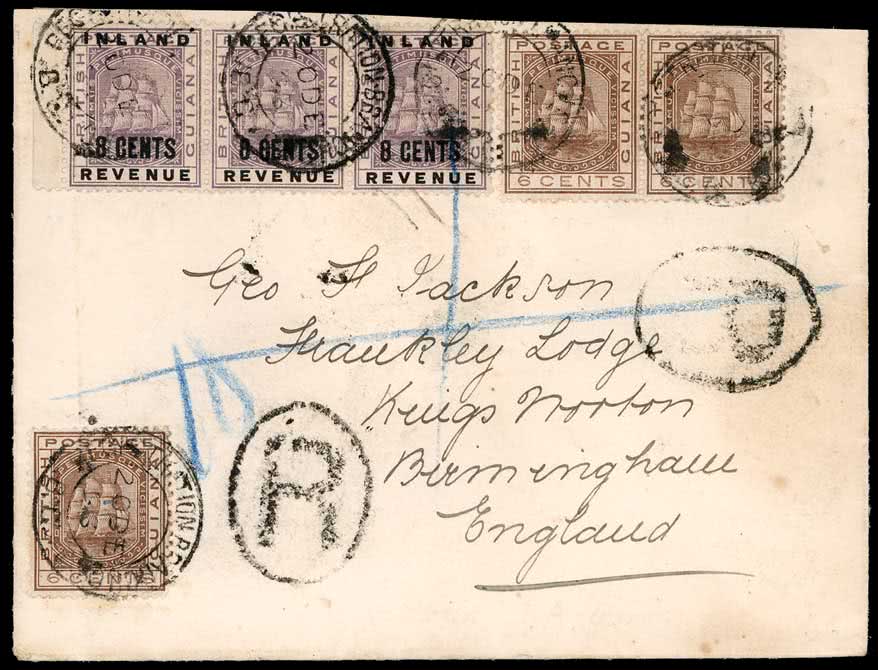 INLAND INLAND INLAND
BRITISH GUIANA BRITISH GUIANA BRITISH GUIANA
8 CENTS 8 CENTS 8 CENTS
REVENUE REVENUE REVENUE
POSTAGE POSTAGE
BRITISH GUIANA BRITISH GUIANA
6 CENTS 6 CENTS
Geo H Jackson
Frankley Lodge
Kings Norton
Birmingham
England
R
POSTAGE
BRITISH GUIANA
6 CENTS